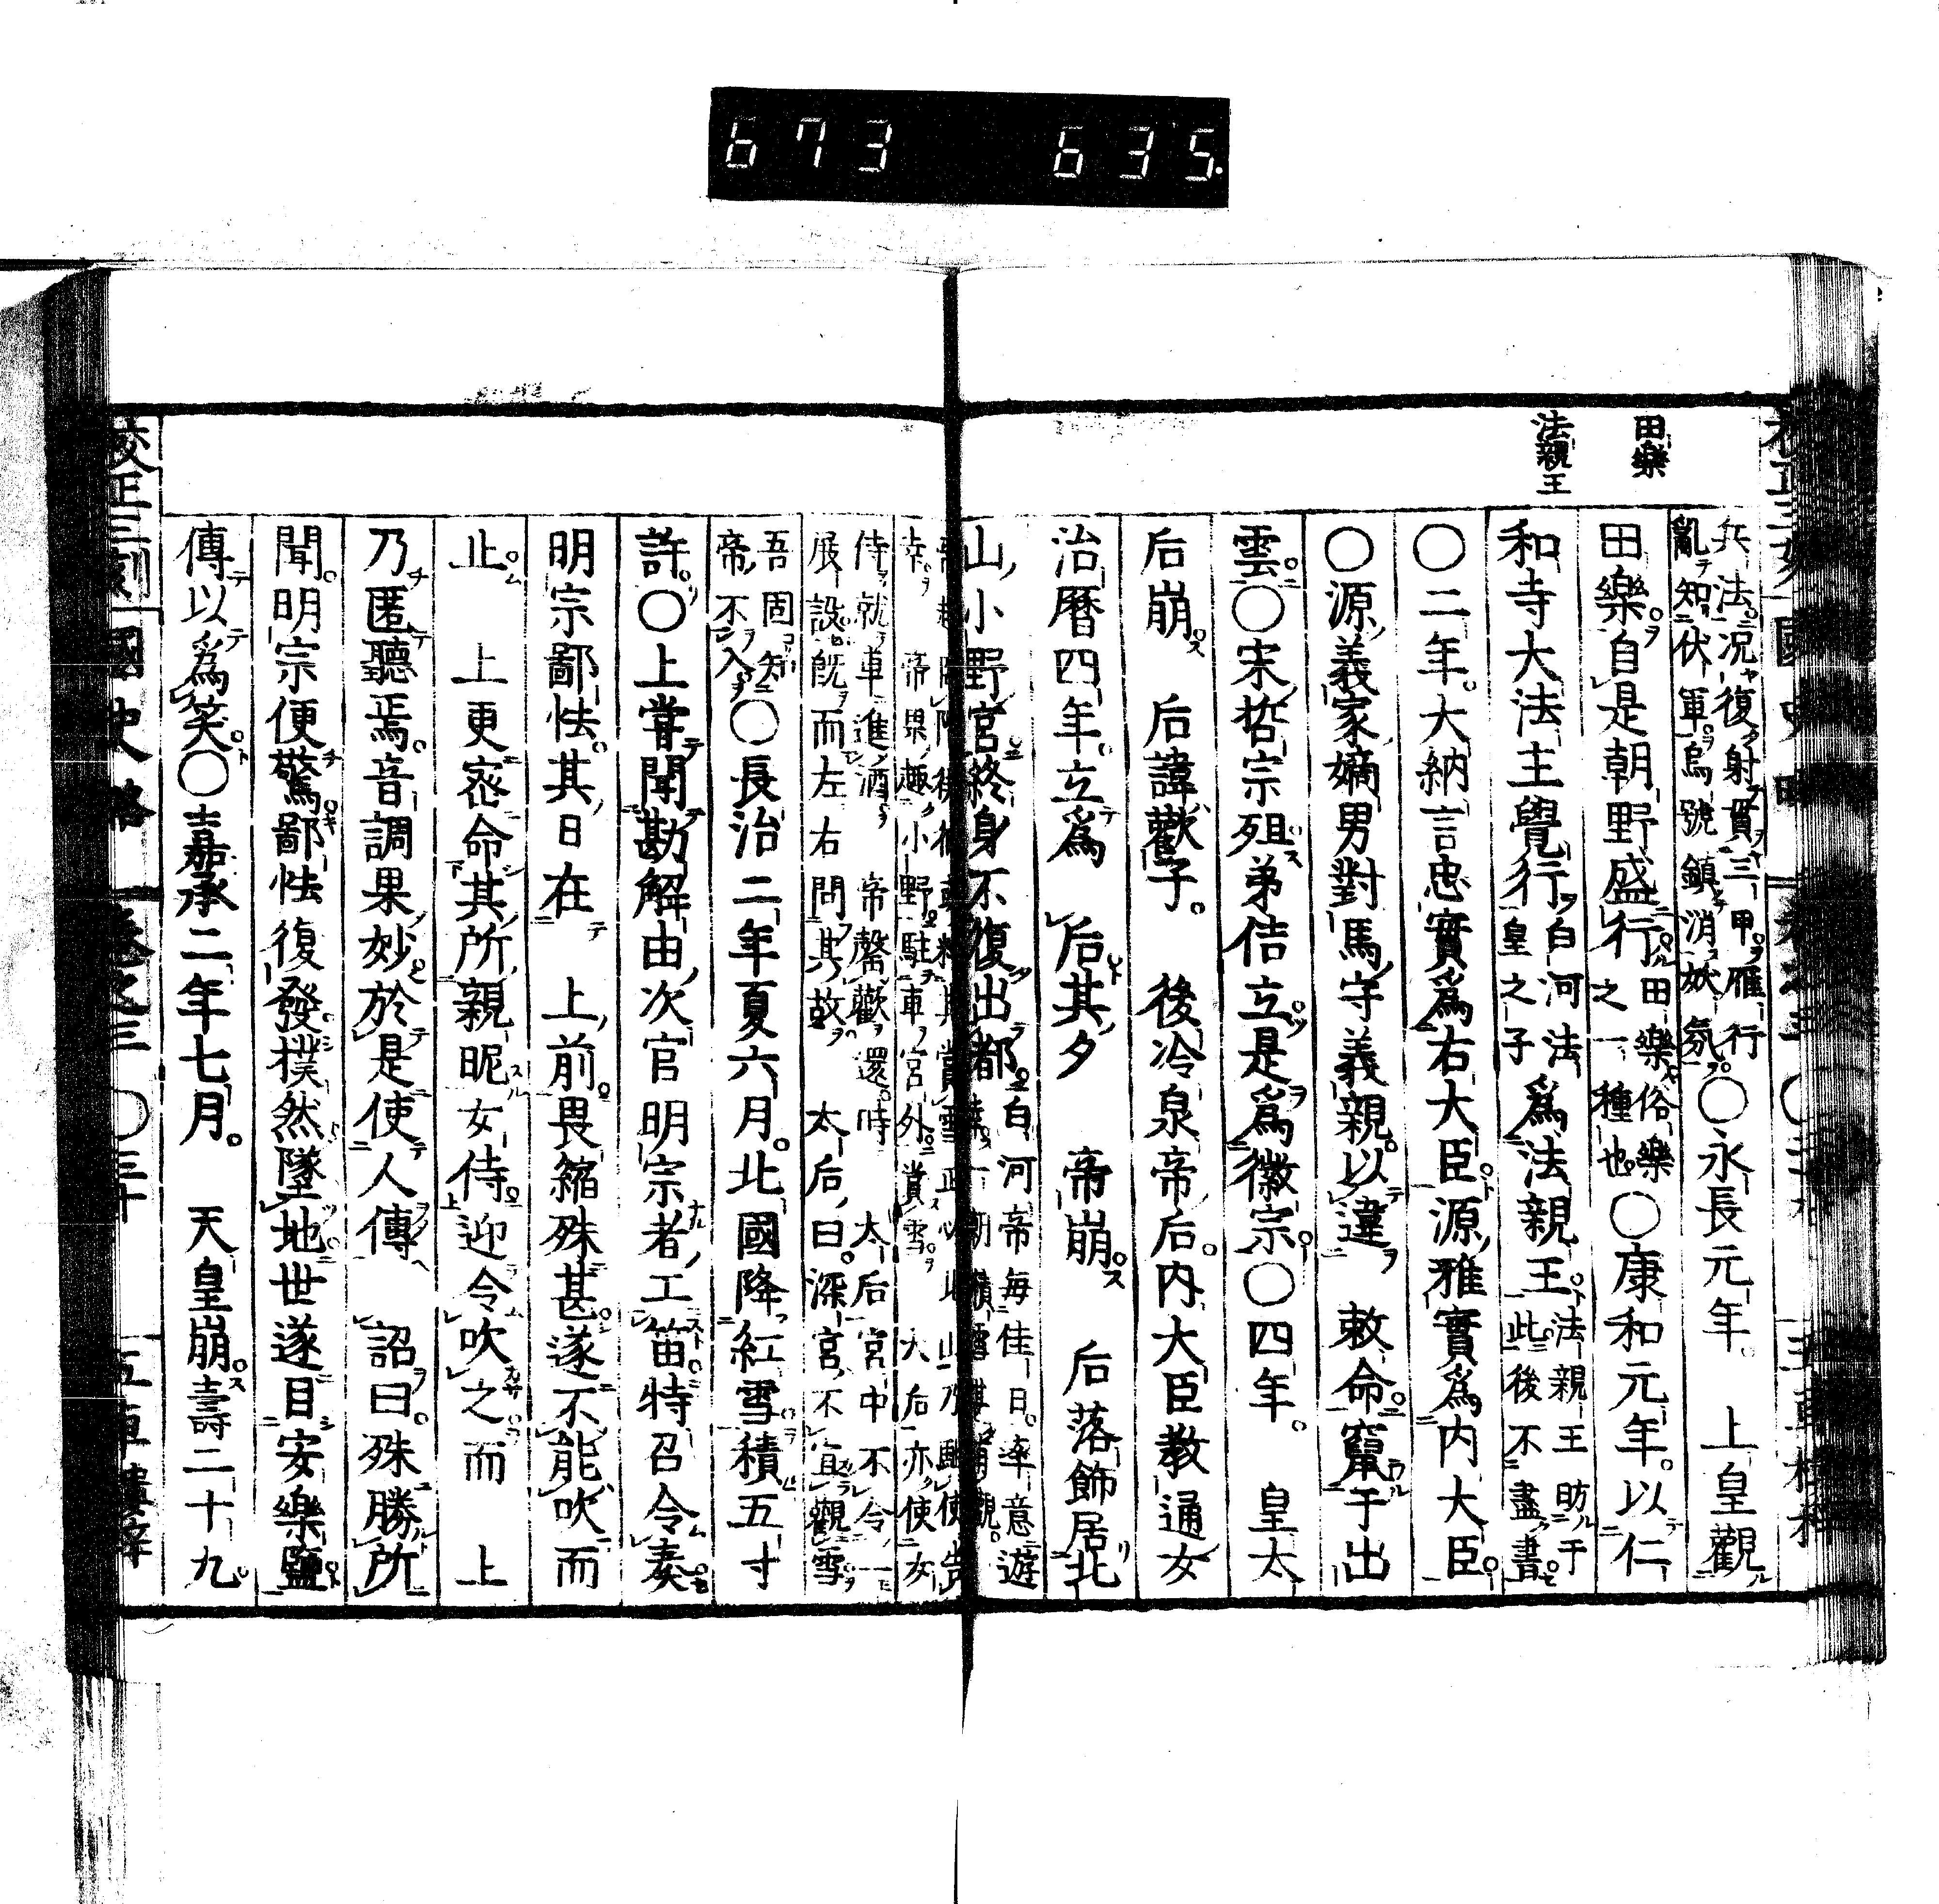 673 635.
田樂
法親王
兵法況復射貫三甲雁行
亂知伏軍烏號鎮消妖氛〇永長元年 上皇觀
田樂自是朝野盛行田樂俗樂
之一種也〇康和元年以仁
和寺大法主覺行白河法
皇之子爲法親王法親王昉于
此後不盡書
〇二年大納言忠實爲右大臣源雅實爲内大臣
〇源義家嫡男對馬守義親以違 敕命竄于出
雲〇宋哲宗殂弟佶立是爲徽宗〇四年 皇太
后崩 后諱歡子 後冷泉帝后内大臣教通女
治曆四年立爲 后其夕 帝崩 后落飾居北
山小野宮終身不復出都白河帝每佳日率意遊
幸 帝果趣小野駐車宮外賞雪 大后亦使女
侍就車進酒 帝罄歡還時 太后宮中不令一
展設旣而左右問其故 太后曰深宮不宜觀雪
吾固知
帝不入〇長治二年夏六月北國降紅雪積五寸
許〇上嘗聞勘解由次官明宗者工笛特召令奏
明宗鄙怯其日在 上前畏縮殊甚遂不能吹而
止 上更密命其所親昵女侍迎令吹之而 上
乃匿聽焉音調果妙於是使人傳 詔曰殊勝所
聞明宗便驚鄙怯復發撲然墜地世遂目安樂鹽
傳以爲笑〇嘉承二年七月 天皇崩壽二十九
校正三刻 國史略 卷之三 〇三十 五車樓梓